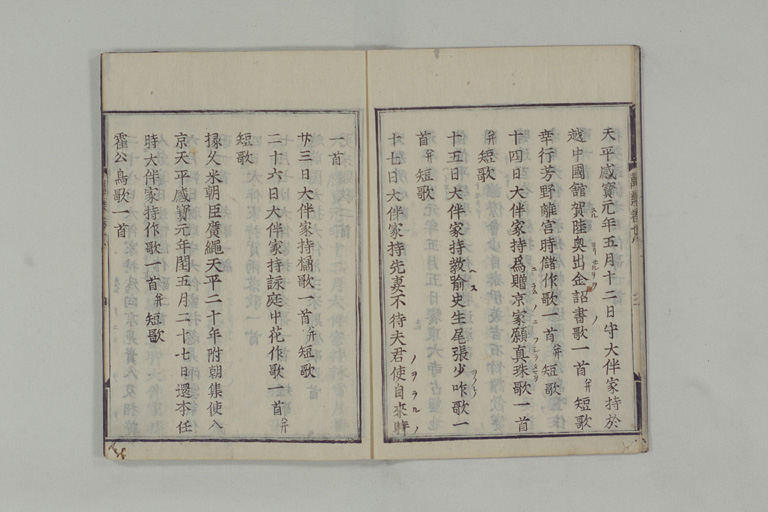 天平感寳元年五月十二日守大伴家持於
越中國館賀陸奥出金詔書歌一首并短歌
幸行芳野離宮時儲作歌一首并短歌
十四日大伴家持爲贈京家願真珠歌一首
并短歌
十五日大伴家持教喻史生尾張少咋歌一
首并短歌
十七日大伴家持先妻不待夫君使自來時
一首
廿三日大伴家持橘歌一首并短歌
二十六日大伴家持詠庭中花作歌一首并
短歌
掾久米朝臣廣繩天平二十年附朝集使入
京天平感寳元年閏五月二十七日還本任
時大伴家持作歌一首并短歌
霍公鳥歌一首